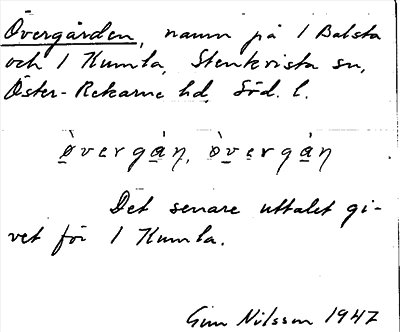 Övergården, namn på 1 Balsta
och 1 Kumla, Stenkvista sn,
Öster-Rekarne hd, Söd. l.
ò̤vergàn̥, ò̤vergàn̥
Det senare uttalet gi-
vet för 1 Kumla.
Gun Nilsson 1947